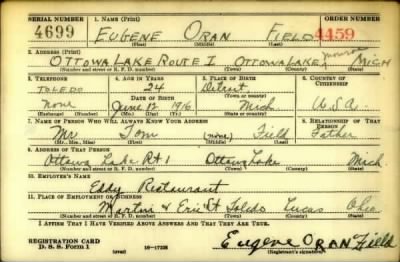 SERIAL NUMBER 1. NAME (Print) ORDER NUMBER
4699 EUGENE ORAN FIELD 4459
(First) (Middle) (Last)
2. ADDRESS (Print)
OTTOWA LAKE ROUTE I OTTOWA LAKE Monroe MICH
(Number and street or R. F. D. number) (Town) (County) (State)
3. TELEPHONE 4. AGE IN YEARS 5. PLACE OF BIRTH 6. COUNTRY OF CITIZENSHIP
TOLEDO 24 Detroit
DATE OF BIRTH (Town or county)
none June 12 1916 Mich U.S.A.
(Exchange) (Number) (Mo.) (Day) (Yr.) (State or country)
7. NAME OF PERSON WHO WILL ALWAYS KNOW YOUR ADDRESS 8. RELATIONSHIP OF THAT PERSON
Mr Tom (none) Field Father
(Mr., Mrs., Miss) (First) (Middle) (Last)
9. ADDRESS OF THAT PERSON
Ottowa Lake Rt 1 Ottowa Lake Mich
(Number and street or R. F. D. number) (Town) (County) (State)
10. EMPLOYER'S NAME
Eddy Restaurant
11. PLACE OF EMPLOYMENT OR BUSINESS
Martin & Erie St Toledo Lucas Ohio
(Number and street or R. F. D. number) (Town) (County) (State)
I AFFIRM THAT I HAVE VERIFIED ABOVE ANSWERS AND THAT THEY ARE TRUE.
REGISTRATION CARD
D. S. S. Form 1 (over) 16-17105 Eugene ORAN Field
(Registrant's signature)